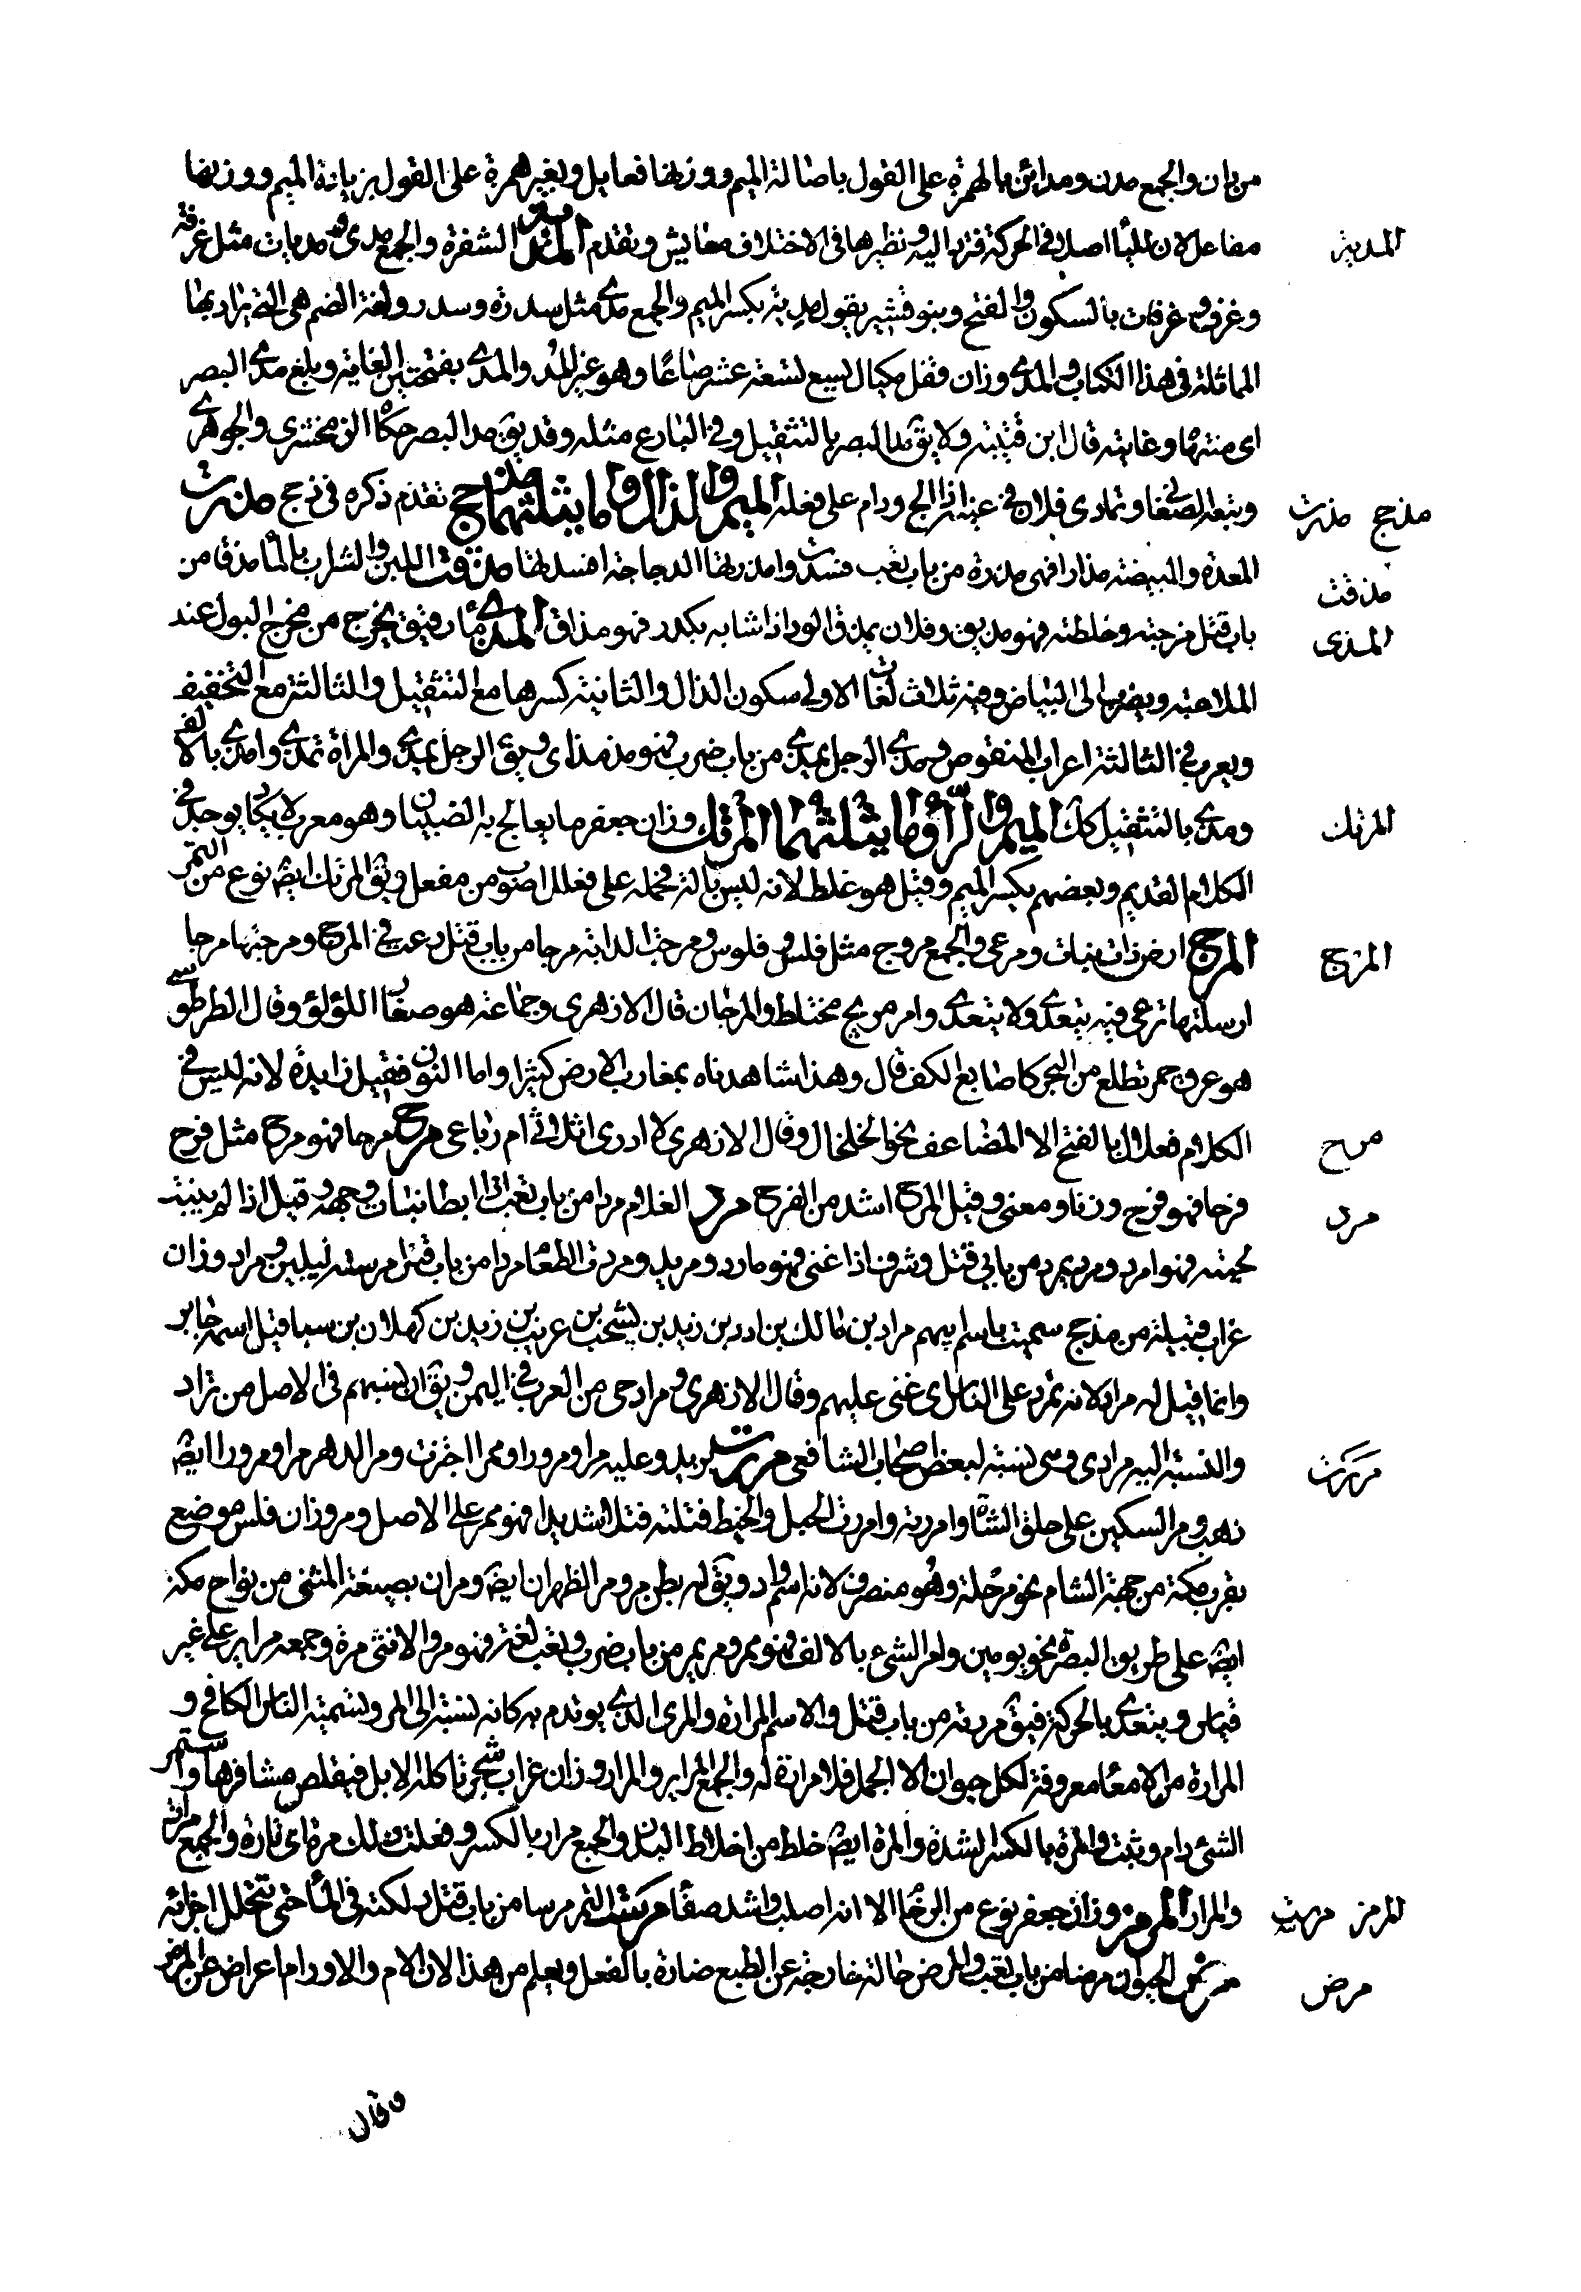 من دان والجمع مدن ومدائن بالهمزة على القول باصالة الميم ووزنها فعايل وبغير همزة على القول بزيادة الميم ووزنها
المدية
مفاعل لان للياء اصلا في الحركة فترد اليه ونظيرها في الاختلاف معايش وتقدم المدية الشفرة والجمع مدى ومديات مثل غرفة
وغرف وغرفات بالسكون والفتح وبنو قشير يقول مدية بكسر الميم والجمع مدى مثل سدرة وسدر ولغة الضم هى التى يراد بها
المماثلة في هذا الكتاب والمدى وزان قفل مكيال يسع تسعة عشر صاعا وهو غير المد والمدى بفتحتين الغاية وبلغ مدى البصر
اى منتهاه وغايته قال ابن قتيبة ولا يق مد البصر بالتثقيل وفي البارع مثله وقد يق مد البصر حكاه الزمخشرى والجوهرى
مذجح مذرت
وتبعه الصغانى وتمادى فلان في غيه اذا لج ودام على فعله الميم والذال وما يثلثهما مذحج تقدم ذكره في ذحج مذرت
المعدة والبيضة مذرا فهى مذرة من باب تعب فسدت وامذرتها الدجاجة افسدتها مذقت اللبن والشراب بالماء مذقا من
مذقت
باب قتل مزجته وخلطته فهو مذيق وفلان يمذق الود اذا شابه بكدر فهو مذاق المذى ماء رقيق يخرج من مخرج البول عند
المذى
الملاعبة ويضرب الى البياض وفيه ثلاث لغات الاولى سكون الذال والثانية كسرها مع التثقيل والثالثة مع التخفيف
ويعرب في الثالثة اعراب المنقوص ومذى الرجل يمذى من باب ضرب فهو مذاء ويق الرجل يمذى والمراة تمذى وامذى بالالف
ومذى بالتثقيل كك الميم والراء وما يثلثهما المرتك وزان جعفر ما يعالج به الصنان وهو معرب لا يكاد يوجد في
المرتك
الكلام القديم وبعضهم بكسر الميم وقيل هو غلط لانه ليس بآلة فحمله على فعلل اصوب من مفعل ويق المرتك ايض نوع من التمر
المرج
المرج ارض ذات نبات ومرعى والجمع مروج مثل فلس وفلوس ومرجت الدابة مرجا من باب قتل رعت في المرج ومرجتها مرجا
ارسلتها ترعى فيه يتعدى ولا يتعدى وامر مريج مختلط والمرجان قال الازهرى وجماعة هو صغار اللؤلؤ وقال الطرطوسى
هو عروق حمر تطلع من البحر كاصابع الكف قال وهذا شاهدناه بمغارب الارض كثيرا واما النون فقيل زايدة لانه ليس في
الكلام فعلال بالفتح الا المضاعف نحو الخلخال وقال الازهرى لا ادرى اثلاثى ام رباعى مرح مرحا فهو مرح مثل فرح
مرح
فرحا فهو فرح وزنا ومعنى وقيل المرح اشد من الفرح مرد الغلام مردا من باب تعب اذا ابطا نبات وجهه وقيل اذا لم ينبت
مرد
لحيته فهو امرد ومرد يمرد من بابى قتل وشرف اذا عتى فهو مارد ومريد ومردت الطعام مردا من باب قتل مرسته ليلين ومراد وزان
غراب قبيلة من مذحج سميت باسم ابيهم مراد بن مالك بن ادد بن زيد بن يشحب بن عريب بن زيد بن كهلان بن سبا قيل اسمه جابر
وانما قيل له مراد لانه تمرد على الناس اى عتى عليهم وقال الازهرى ومراد حى من العرب في اليمن ويق ان نسبهم فى الاصل من نزار
والنسبة اليه مرادى وهى نسبة لبعض اصحاب الشافعى مررت بزيد وعليه مرا ومرورا وممرا اجتزت ومر الدهر مرا ومرورا ايض
مررت
ذهب ومر السكين على حلق الشاة وامررته وامررت الحبل والخيط فتلته فتلا شديدا فهو ممر على الاصل ومر وزان فلس موضع
بقرب مكة من جهة الشام نحو مرحلة وهو منصرف لانه اسم واد ويق له بطن مر ومر الظهران ايض ومران بصيغة المثنى من نواحى مكة
ايض على طريق البصرة نحو يومين وامر الشىء بالالف فهو ممر ومر يمر من باب ضرب وتعب لغة فهو مر والانثى مرة وجمعه مراير على غير
قياس ويتعدى بالحركة فيق مررته من باب قتل والاسم المرارة والمرى الذى يوتدم به كانه نسبة الى المر وتسميه الناس الكامخ و
المرارة من الامعاء معروفة لكل حيوان الا الجمل فلا مرارة له والجمع المراير والمرار وزان غراب شجر تاكله الابل فيقلص مشافرها واستمر
الشئ دام وثبت والمرة بالكسر الشدة والمرة ايض خلط من اخلاط البدن والجمع مرار بالكسر وفعلت ذلك مرة اى تارة والجمع مرات
والمرار المرمر وزان جعفر نوع من الرخام الا انه اصلب واشد صفاء مرست التمر مرسا من باب قتل دلكته في الماء حتى تتحلل اجزائه
المرمر مرست
مرض الحيوان مرضا من باب تعب والمرض حالة خارجة عن الطبع ضارة بالفعل ويعلم من هذا ان الالام والاورام اعراض عن المرض
مرض
وقال